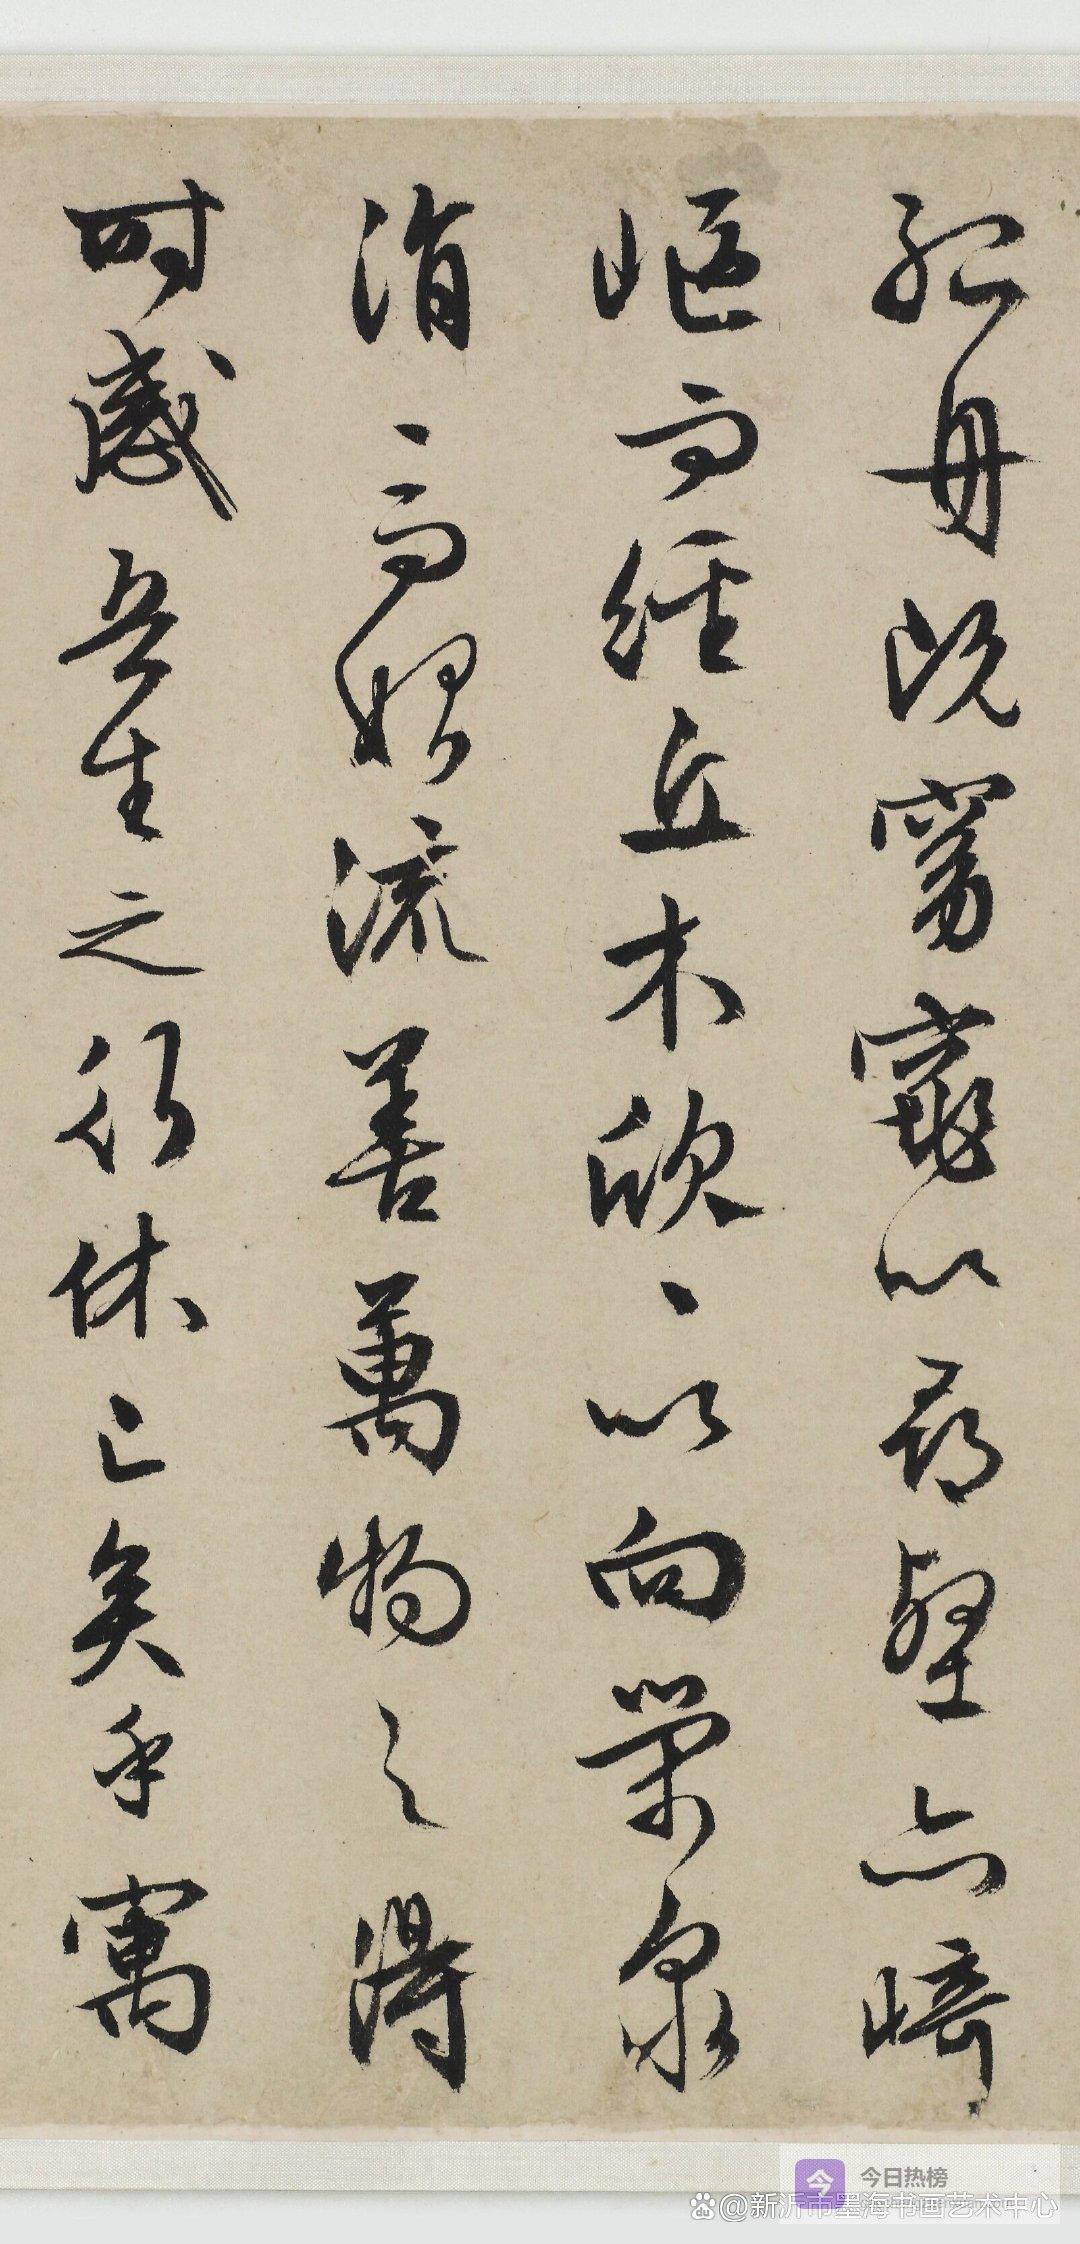 孤舟既窈窕以尋壑亦崎
嶇而經丘木欣、以向榮泉
涓、而始流善萬物之得
時感吾生之行休已矣乎寓
今 今日热榜
@新沂市墨海书画艺术中心